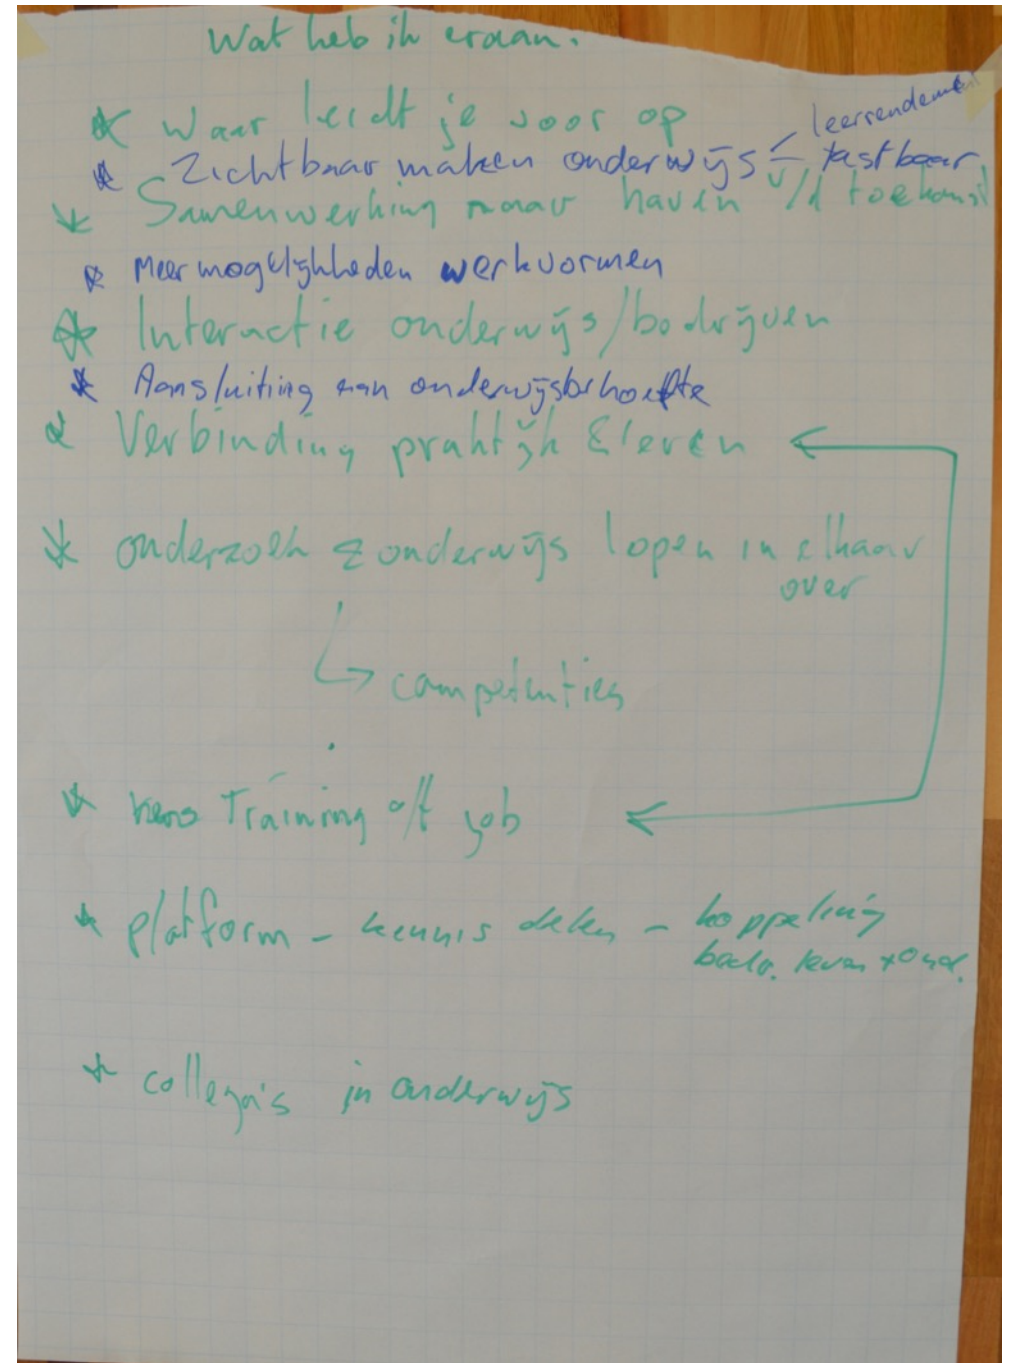 Wat heb ik eraan.
* Waar leidt je voor op
leerrendement
* Zichtbaar maken onderwijs - tastbaar
* Samenwerking naar haven v/d toekomst
* Meer mogelijkheden werkvormen
* Interactie onderwijs/bedrijven
* Aansluiting aan onderwijsbehoefte
* Verbinding praktijk & leren
* onderzoek & onderwijs lopen in elkaar
over
competenties
* Training off job
* platform - kennis delen - koppeling
bedr. leven + ond.
* collega's in onderwijs